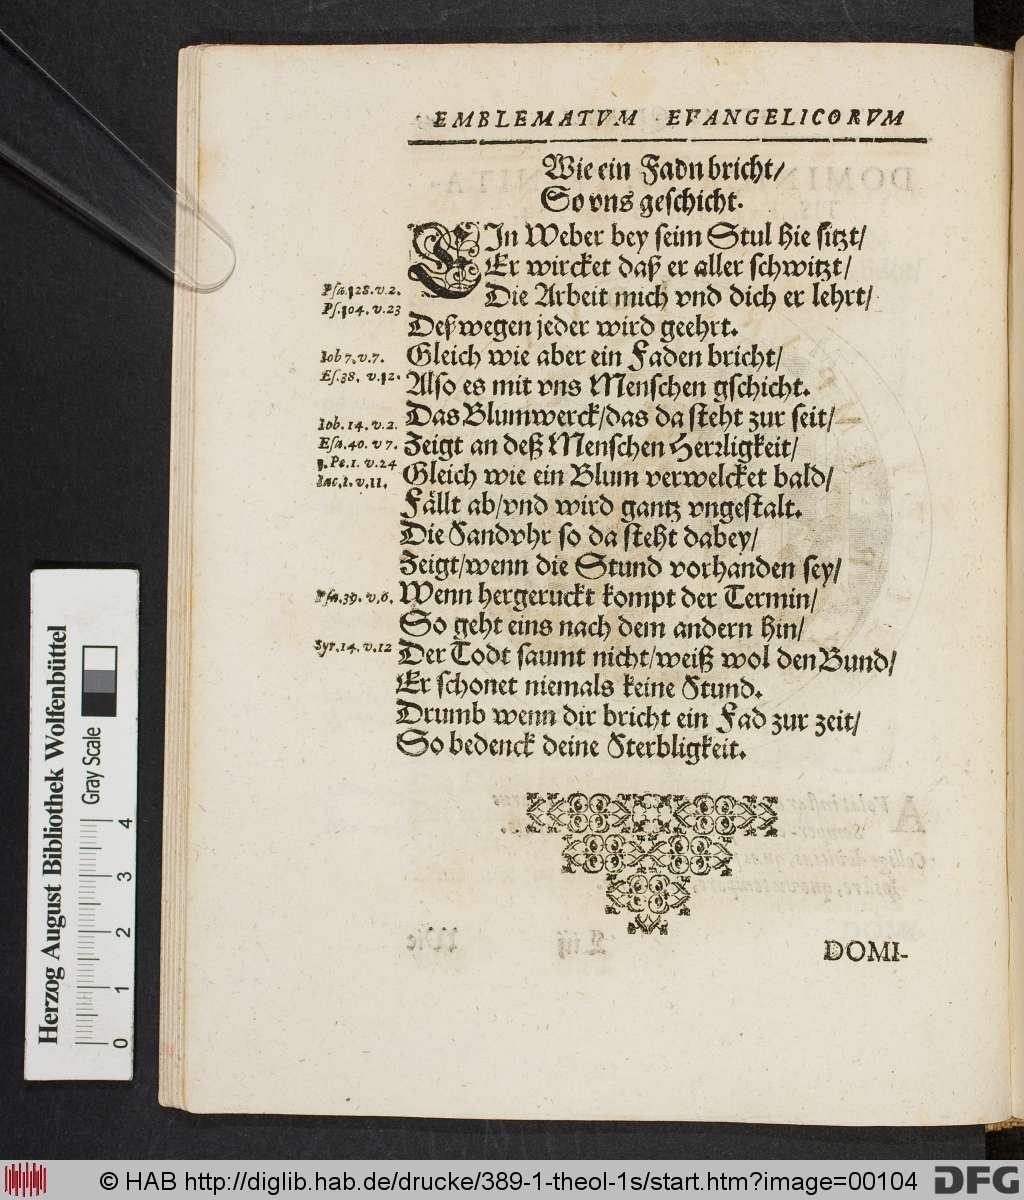 EMBLEMATVM EVANGELICORVM
Wie ein Fadn bricht/
So vns geschicht.
EIn Weber bey seim Stul hie sitzt/
Er wircket daß er aller schwitzt/
Psa.128.v.2.
Die Arbeit mich vnd dich er lehrt/
Ps.104.v.23
Deßwegen jeder wird geehrt.
Iob 7.v.7.
Gleich wie aber ein Faden bricht/
Es.38. v.12.
Also es mit vns Menschen gschicht.
Iob.14.v.2.
Das Blumwerck/das da steht zur seit/
Esa.40.v 7.
Zeigt an deß Menschen Herrligkeit/
1.Pe.1.v.24
Iac.1.v.11.
Gleich wie ein Blum verwelcket bald/
Fällt ab/vnd wird gantz vngestalt.
Die Sandvhr so da steht dabey/
Zeigt/wenn die Stund vorhanden sey/
Psa.39.v.6.
Wenn hergeruckt kompt der Termin/
So geht eins nach dem andern hin/
Syr.14.v.12
Der Todt saumt nicht/weiß wol den Bund/
Er schonet niemals keine Stund.
Drumb wenn dir bricht ein Fad zur zeit/
So bedenck deine Sterbligkeit.
DOMI-
Herzog August Bibliothek Wolfenbüttel
Gray Scale
0 1 2 3 4
© HAB http://diglib.hab.de/drucke/389-1-theol-1s/start.htm?image=00104
DFG